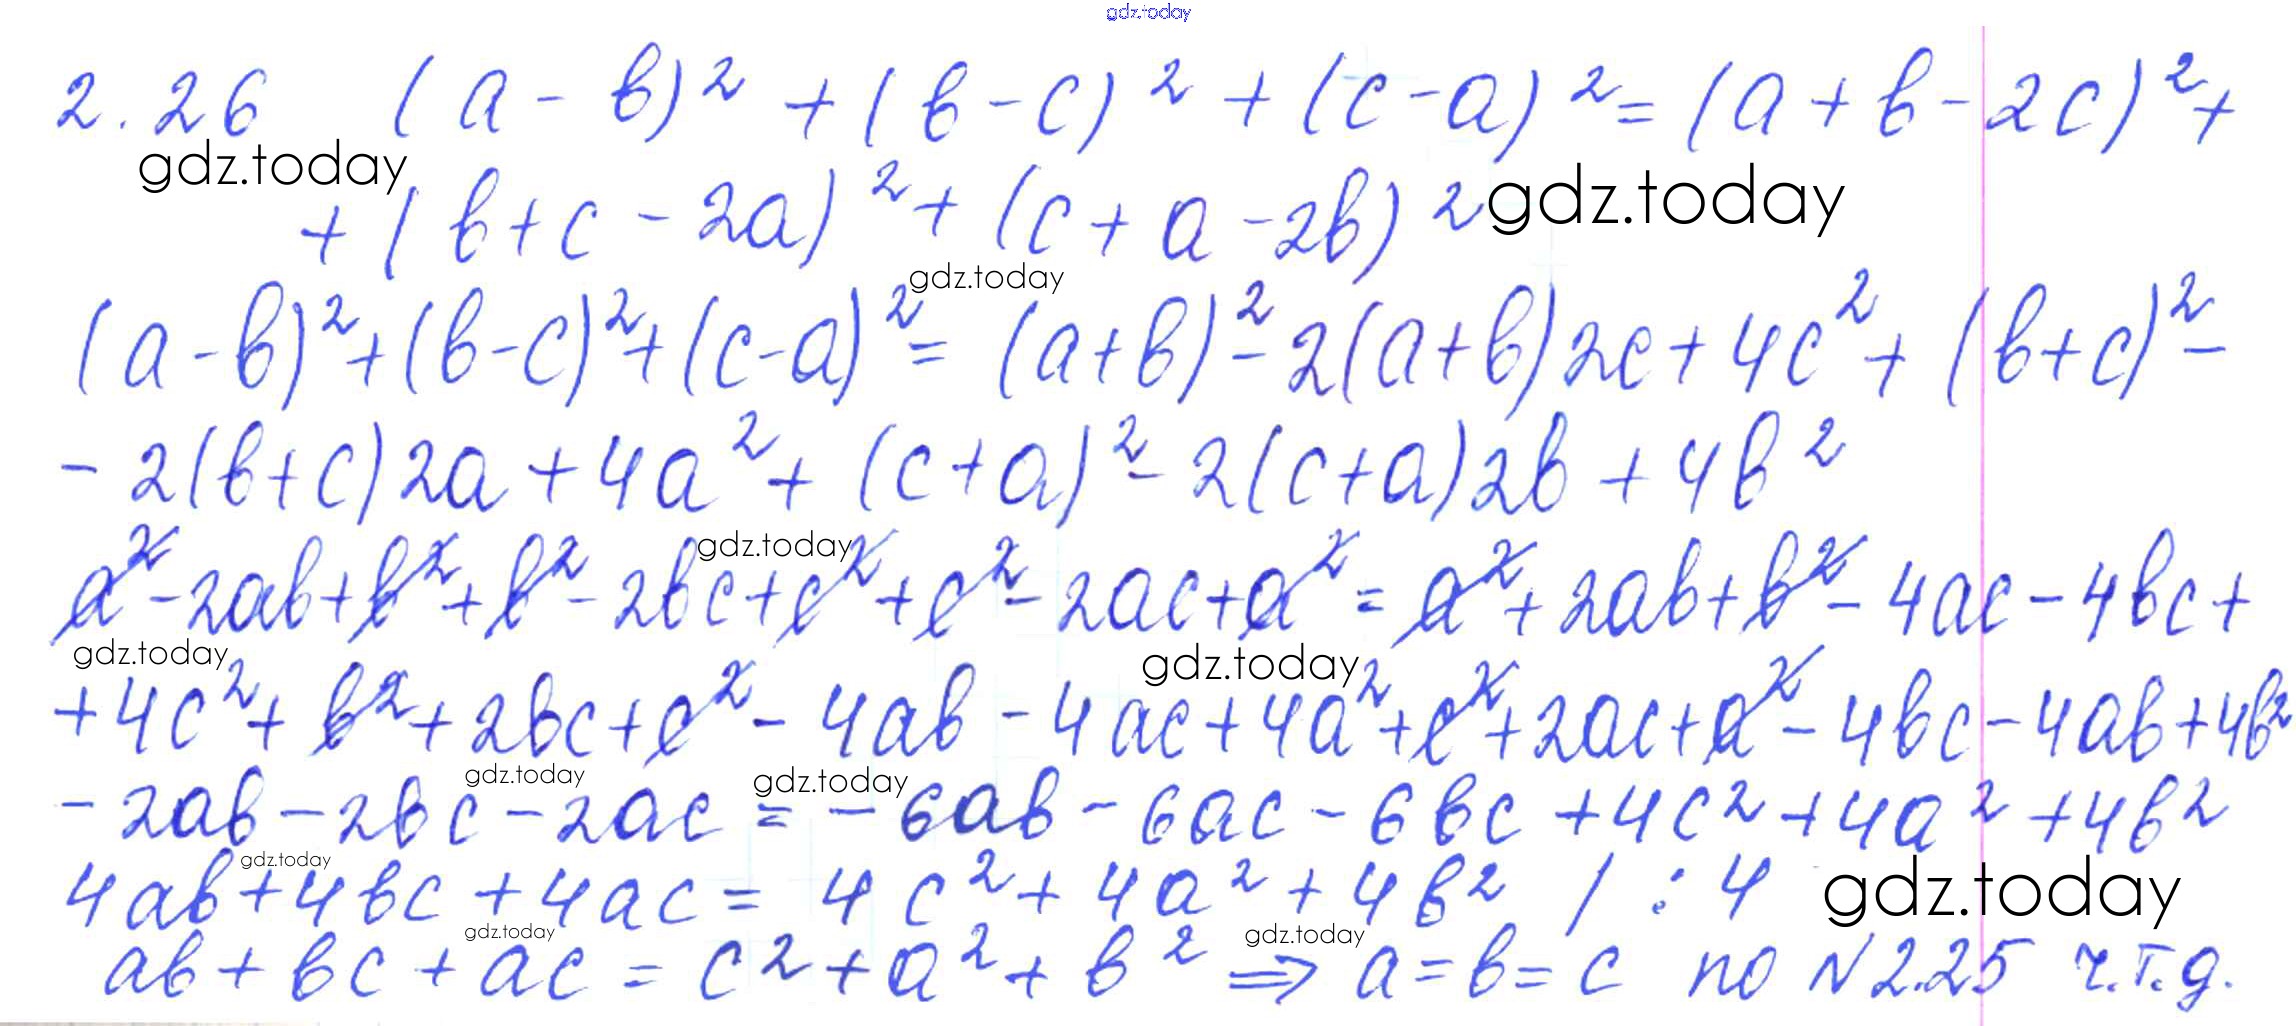 gdz.today
2.26 (a - b)² + (b - c)² + (c - a)² = (a + b - 2c)² +
gdz.today
+ (b + c - 2a)² + (c + a - 2b)² gdz.today
gdz.today
(a - b)² + (b - c)² + (c - a)² = (a + b)² - 2(a + b)2c + 4c² + (b + c)² -
- 2(b + c)2a + 4a² + (c + a)² - 2(c + a)2b + 4b²
gdz.today
a² - 2ab + b² + b² - 2bc + c² + c² - 2ac + a² = a² + 2ab + b² - 4ac - 4bc +
gdz.today gdz.today
+ 4c² + b² + 2bc + c² - 4ab - 4ac + 4a² + c² + 2ac + a² - 4bc - 4ab + 4b²
gdz.today gdz.today
- 2ab - 2bc - 2ac = - 6ab - 6ac - 6bc + 4c² + 4a² + 4b²
gdz.today
4ab + 4bc + 4ac = 4c² + 4a² + 4b² / : 4 gdz.today
gdz.today gdz.today
ab + bc + ac = c² + a² + b² ⇒ a = b = c по N 2.25 ч.т.д.